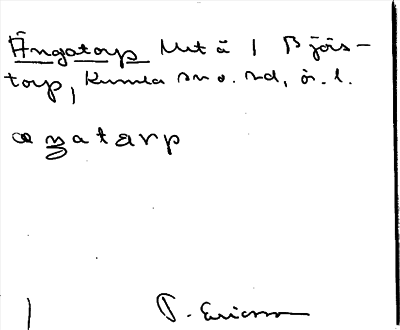 Ängatorp Mutä i Björs-
torp, Kumla sn o. hd, ö. l.
æŋatarp
T. Ericsson